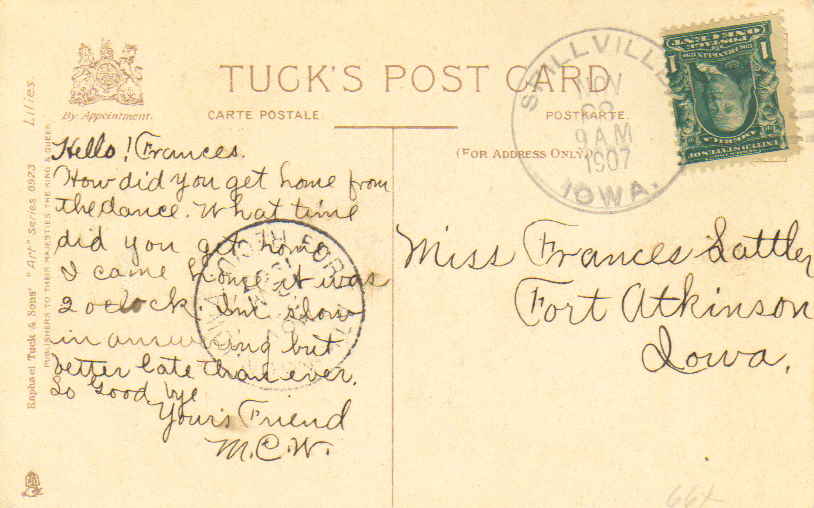 TUCK'S POST CARD
By Appointment.
CARTE POSTALE.
POSTKARTE.
(FOR ADDRESS ONLY)
Raphael Tuck & Sons' "Art" Series 6923 Lilies.
PUBLISHERS TO THEIR MAJESTIES THE KING & QUEEN
NOV
9 AM
1907
IOWA.
Hello! Frances.
How did you get home from
the dance. What time
did you get home
I came home it was
2 oclock. Im slow
in answering but
better late than ever.
So Good bye
Your's Friend
M.C.W.
Miss Frances Sattler
Fort Atkinson
Iowa.